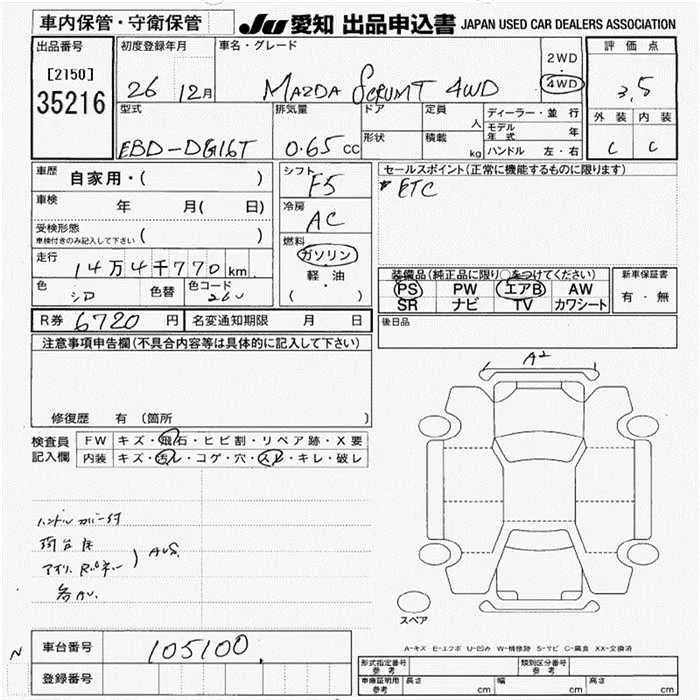 車内保管・守衛保管 JU 愛知 出品申込書 JAPAN USED CAR DEALERS ASSOCIATION
出品番号 初度登録年月 車名・グレード 評価点
[2150] 2WD
35216 26 12月 MAZDA SCRUM T 4WD 4WD 3,5
型式 排気量 ドア 定員 人 ディーラー・並行 外装 内装
モデル年式 年
EBD-DG16T 0.65cc 形状 積載 kg ハンドル 左・右 C C
車歴 自家用・( ) シフト F5 セールスポイント(正常に機能するものに限ります)
車検 年 月( 日) 冷房 AC ETC
受検形態
車検付きのみ記入して下さい ( )
走行 14万4千770km 燃料 ガソリン
軽・油
( )
装備品(純正品に限り○をつけてください) 新車保証書
色 シロ 色替 色コード 26U PS PW エアB AW 有・無
SR ナビ TV カワシート
R券 6720円 名変通知期限 月 日 後日品
注意事項申告欄(不具合内容等は具体的に記入して下さい)
修復歴 有 (箇所 )
A2
検査員 FW キズ・飛石・ヒビ割・リペア跡・X要
記入欄 内装 キズ・汚レ・コゲ・穴・スレ・キレ・破レ
ハンドルカバー付
荷台床
AUS.
スペア
A-キズ E-エクボ U-凹み W-補修跡 S-サビ C-腐食 XX-交換済
N 車台番号 105100
登録番号
形式指定番号 参考 類別区分番号 参考
車庫証明用 参考 長さ cm 幅 cm 高さ cm